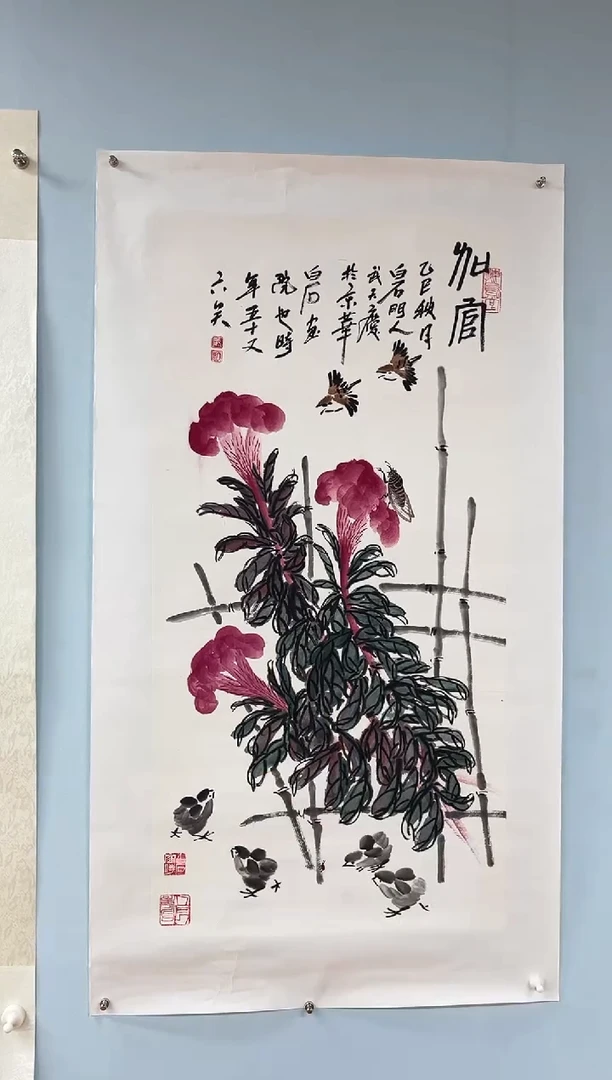 加官
乙巳秋月
白石門人
武天
於京華
白石畫
院也時
年五十又
六矣